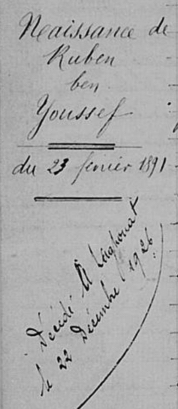 Naissance de
Ruben
ben
Youssef
du 23 février 1891
Décédé à Laghouat
le 22 Décembre 1926